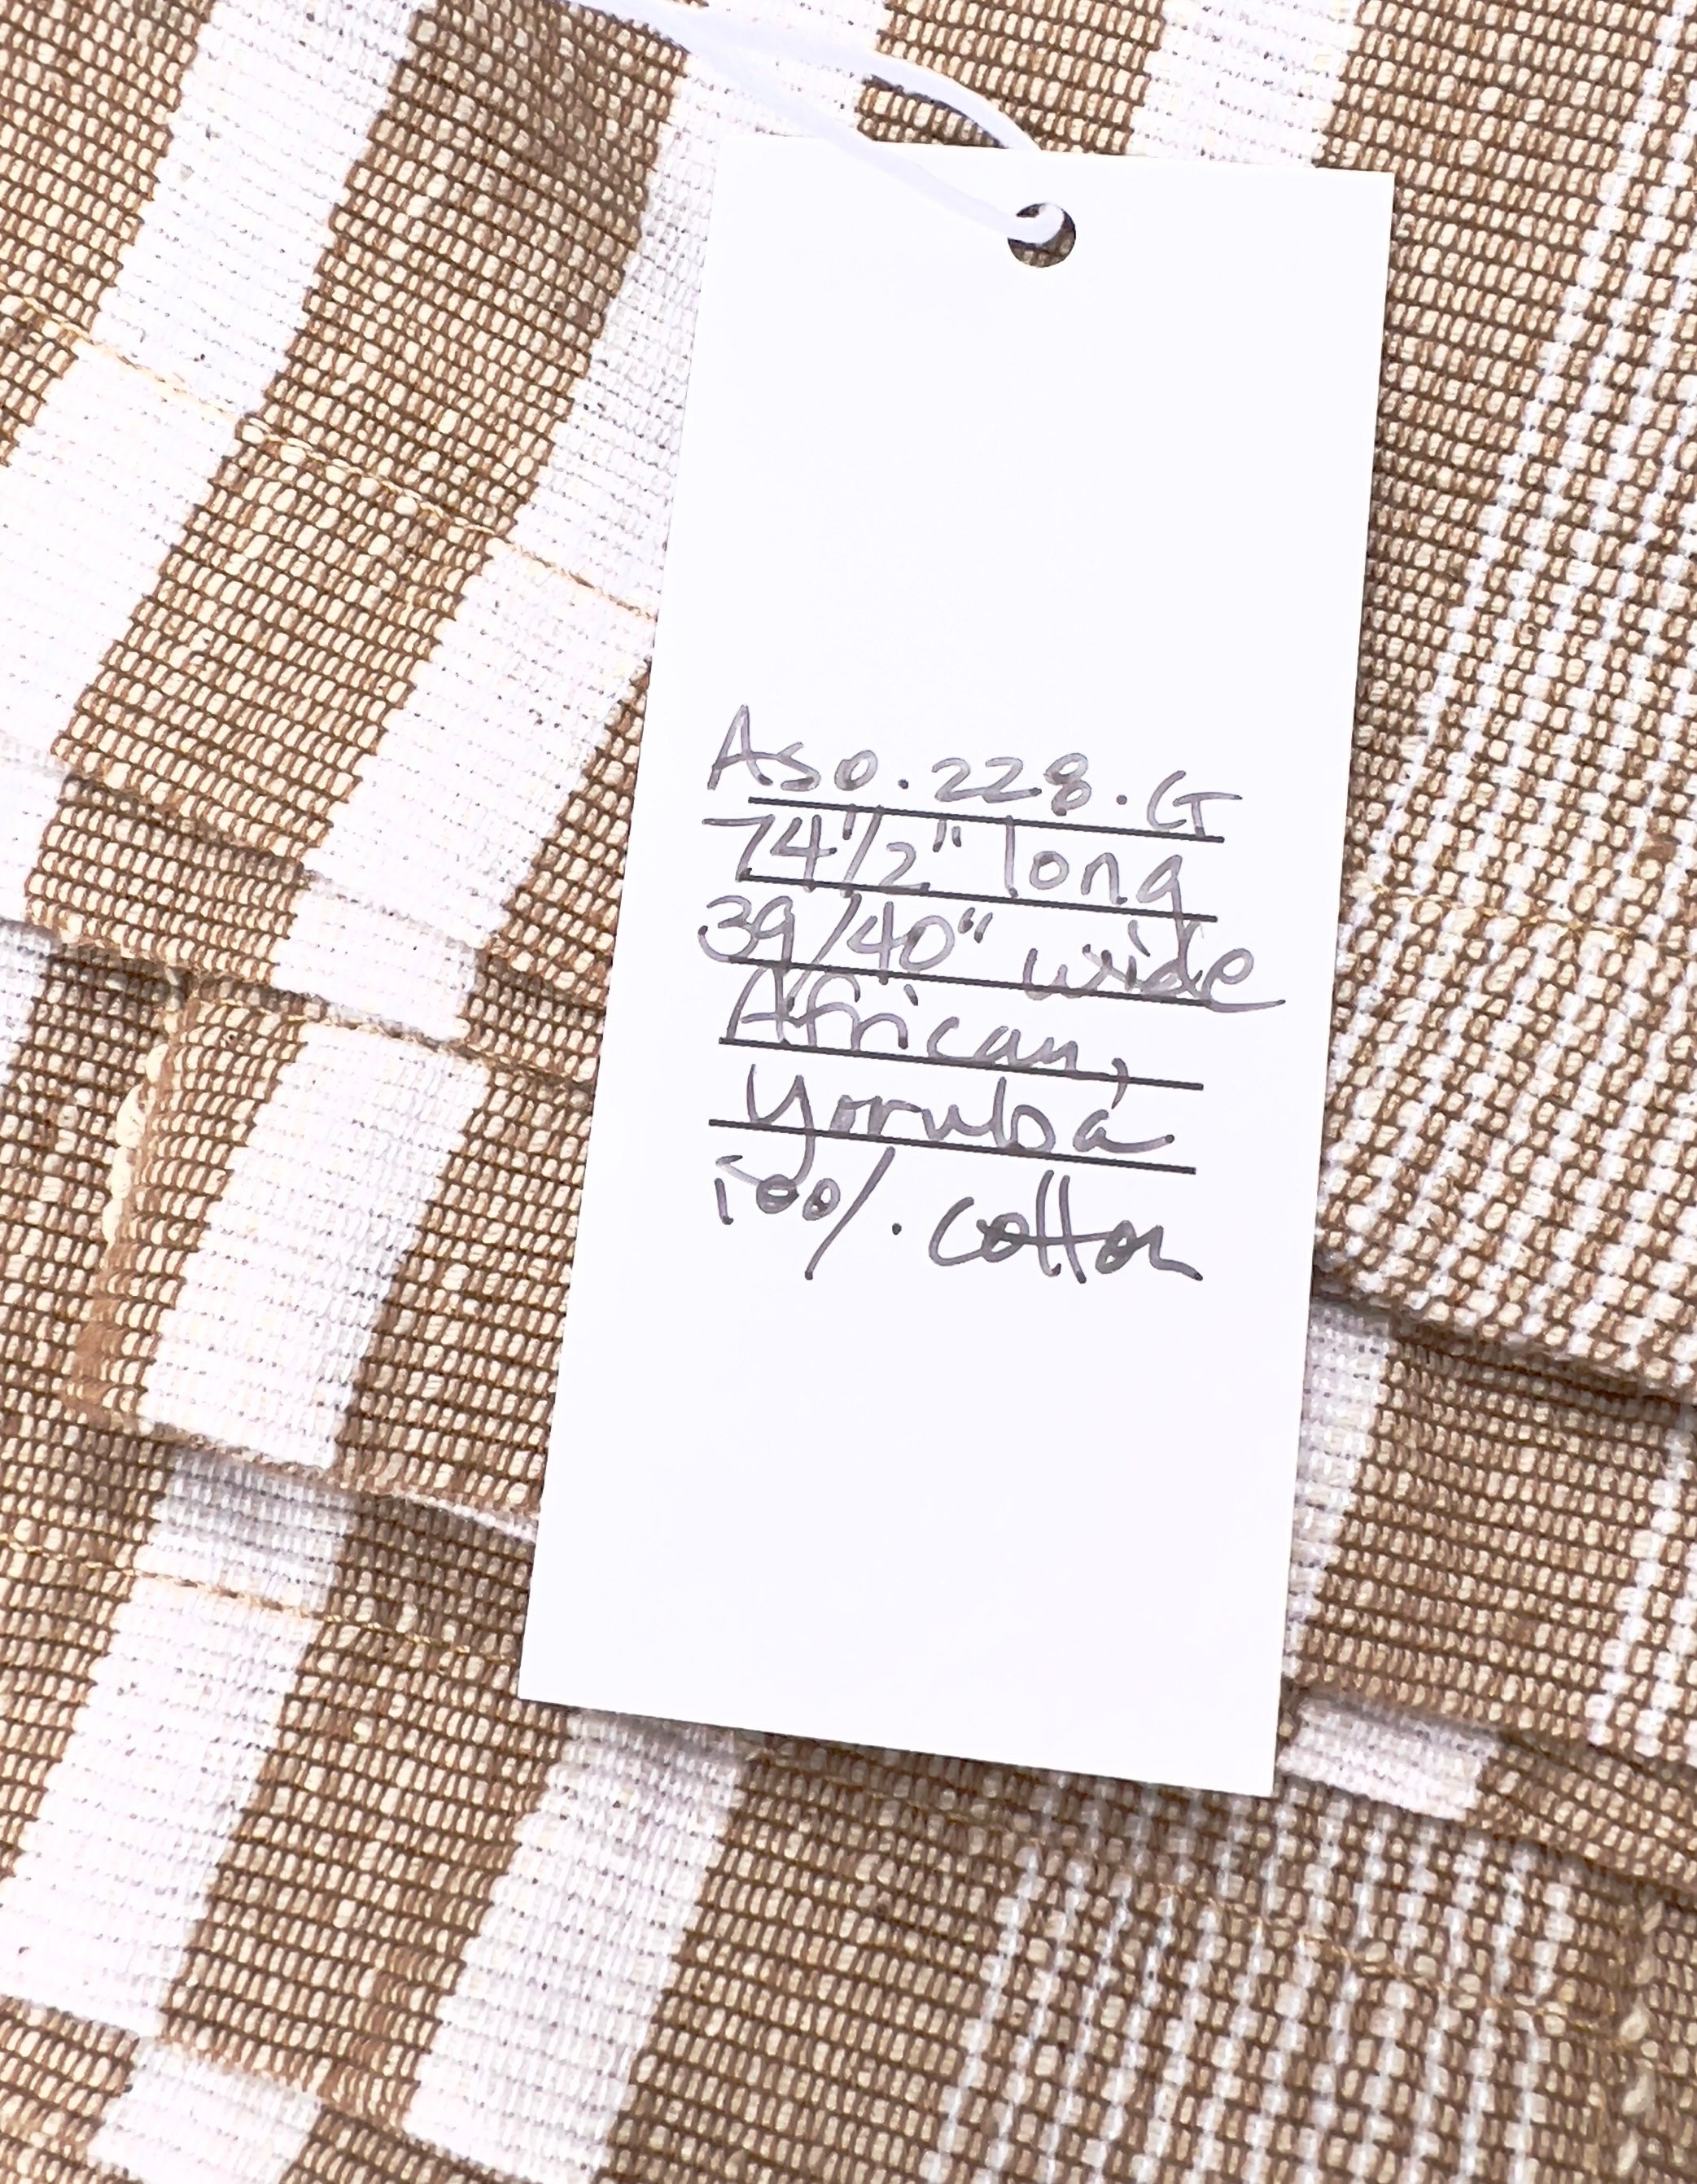 Aso.228.G
74 1/2" long
39/40" wide
African,
Yoruba
100%. cotton